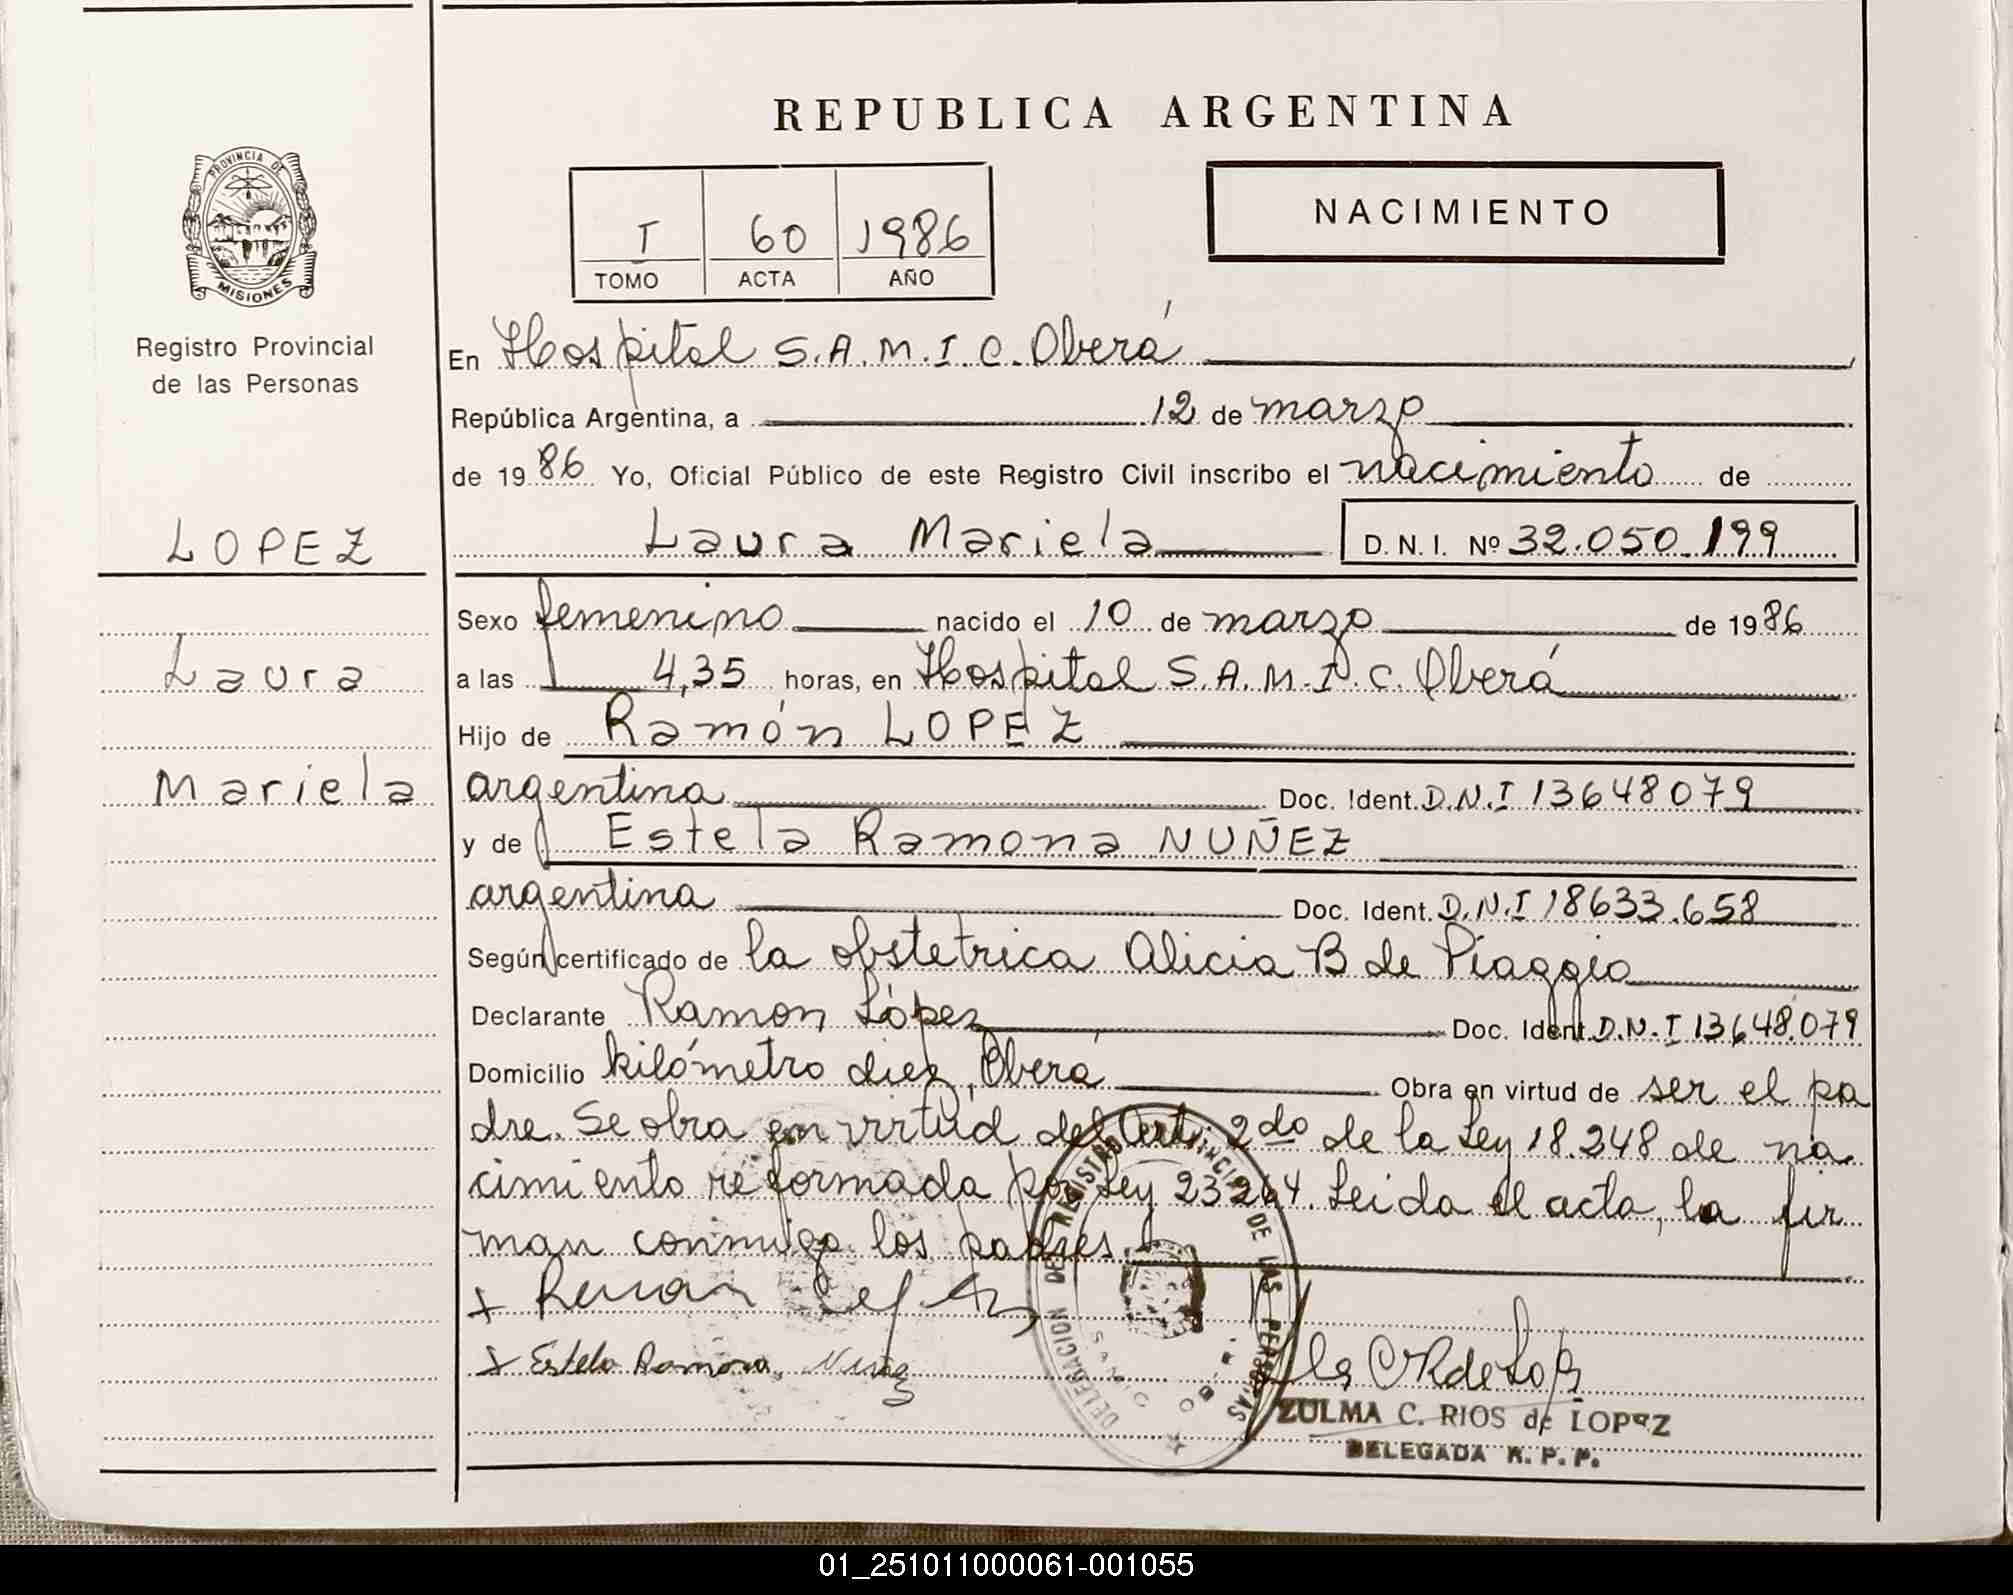 REPUBLICA ARGENTINA
PROVINCIA DE
MISIONES
Registro Provincial
de las Personas
I 60 1986
TOMO ACTA AÑO
NACIMIENTO
En Hospital S.A.M.I.C. Oberá
República Argentina, a 12 de marzo
de 1986 Yo, Oficial Público de este Registro Civil inscribo el nacimiento de
LOPEZ
Laura Mariela D.N.I. Nº 32.050.199
Sexo femenino nacido el 10 de marzo de 1986
Laura
a las 4,35 horas, en Hospital S.A.M.I.C. Oberá
Hijo de Ramón LOPEZ
Mariela
argentina Doc. Ident. D.N.I 13648079
y de Estela Ramona NUÑEZ
argentina Doc. Ident. D.N.I 18633.658
Según certificado de la obstetrica Alicia B de Piaggio
Declarante Ramon López Doc. Ident. D.N.I 13648.079
Domicilio kilómetro diez, Oberá Obra en virtud de ser el pa
dre. Se obra en virtud del Art. 2do de la Ley 18.248 de na
cimiento reformada por Ley 23264. Leida el acta, la fir
man conmigo los padres
+ Estela Ramona Nuñez
DELEGACION DEL REGISTRO PROVINCIAL DE LAS PERSONAS
ZULMA C. RIOS de LOPEZ
DELEGADA R. P. P.
01_251011000061-001055